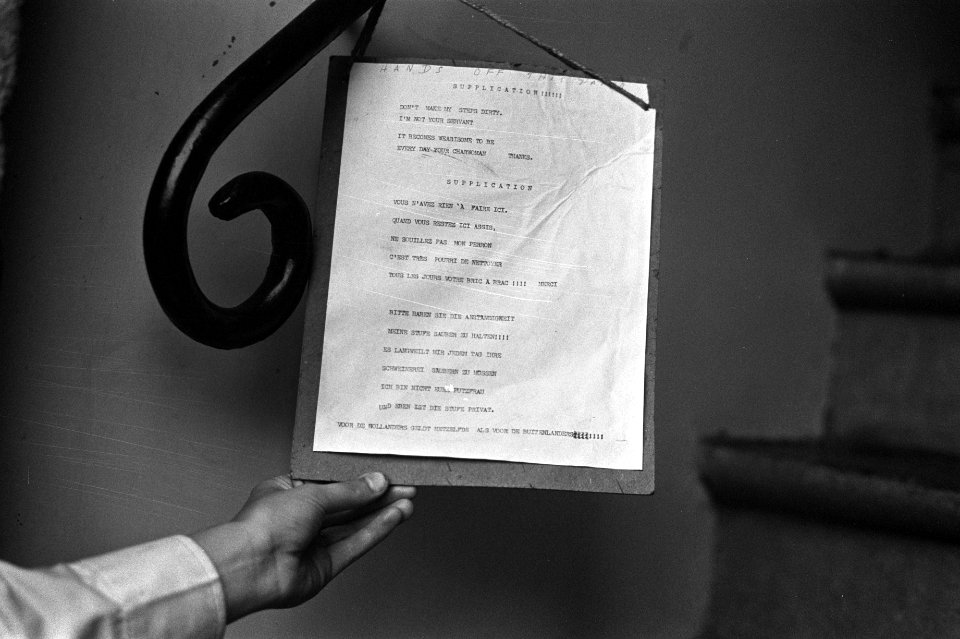 HANDS OFF THIS
SUPPLICATION!!!!!
DON'T MAKE MY STEPS DIRTY.
I'M NOT YOUR SERVANT
IT BECOMES WEARISOME TO BE
EVERY DAY YOUR CHARWOMAN THANKS.
SUPPLICATION
VOUS N'AVEZ RIEN 'À FAIRE ICI.
QUAND VOUS RESTEZ ICI ASSIS,
NE SOUILLEZ PAS MON PERRON
C'EST TRÈS POURRI DE NETTOYER
TOUS LES JOURS VOTRE BRIC À BRAC !!!! MERCI
BITTE HABEN SIE DIE ANSTANDIGKEIT
MEINE STUFE SAUBER ZU HALTEN!!!!
ES LANGWEILT MIR JEDEN TAG IHRE
SCHWEINEREI SAUBERN ZU MÜSSEN
ICH BIN NICHT EURE PUTZFRAU
UND EBEN IST DIE STUFE PRIVAT.
VOOR DE HOLLANDERS GELDT HETZELFDE ALS VOOR DE BUITENLANDERS!!!!